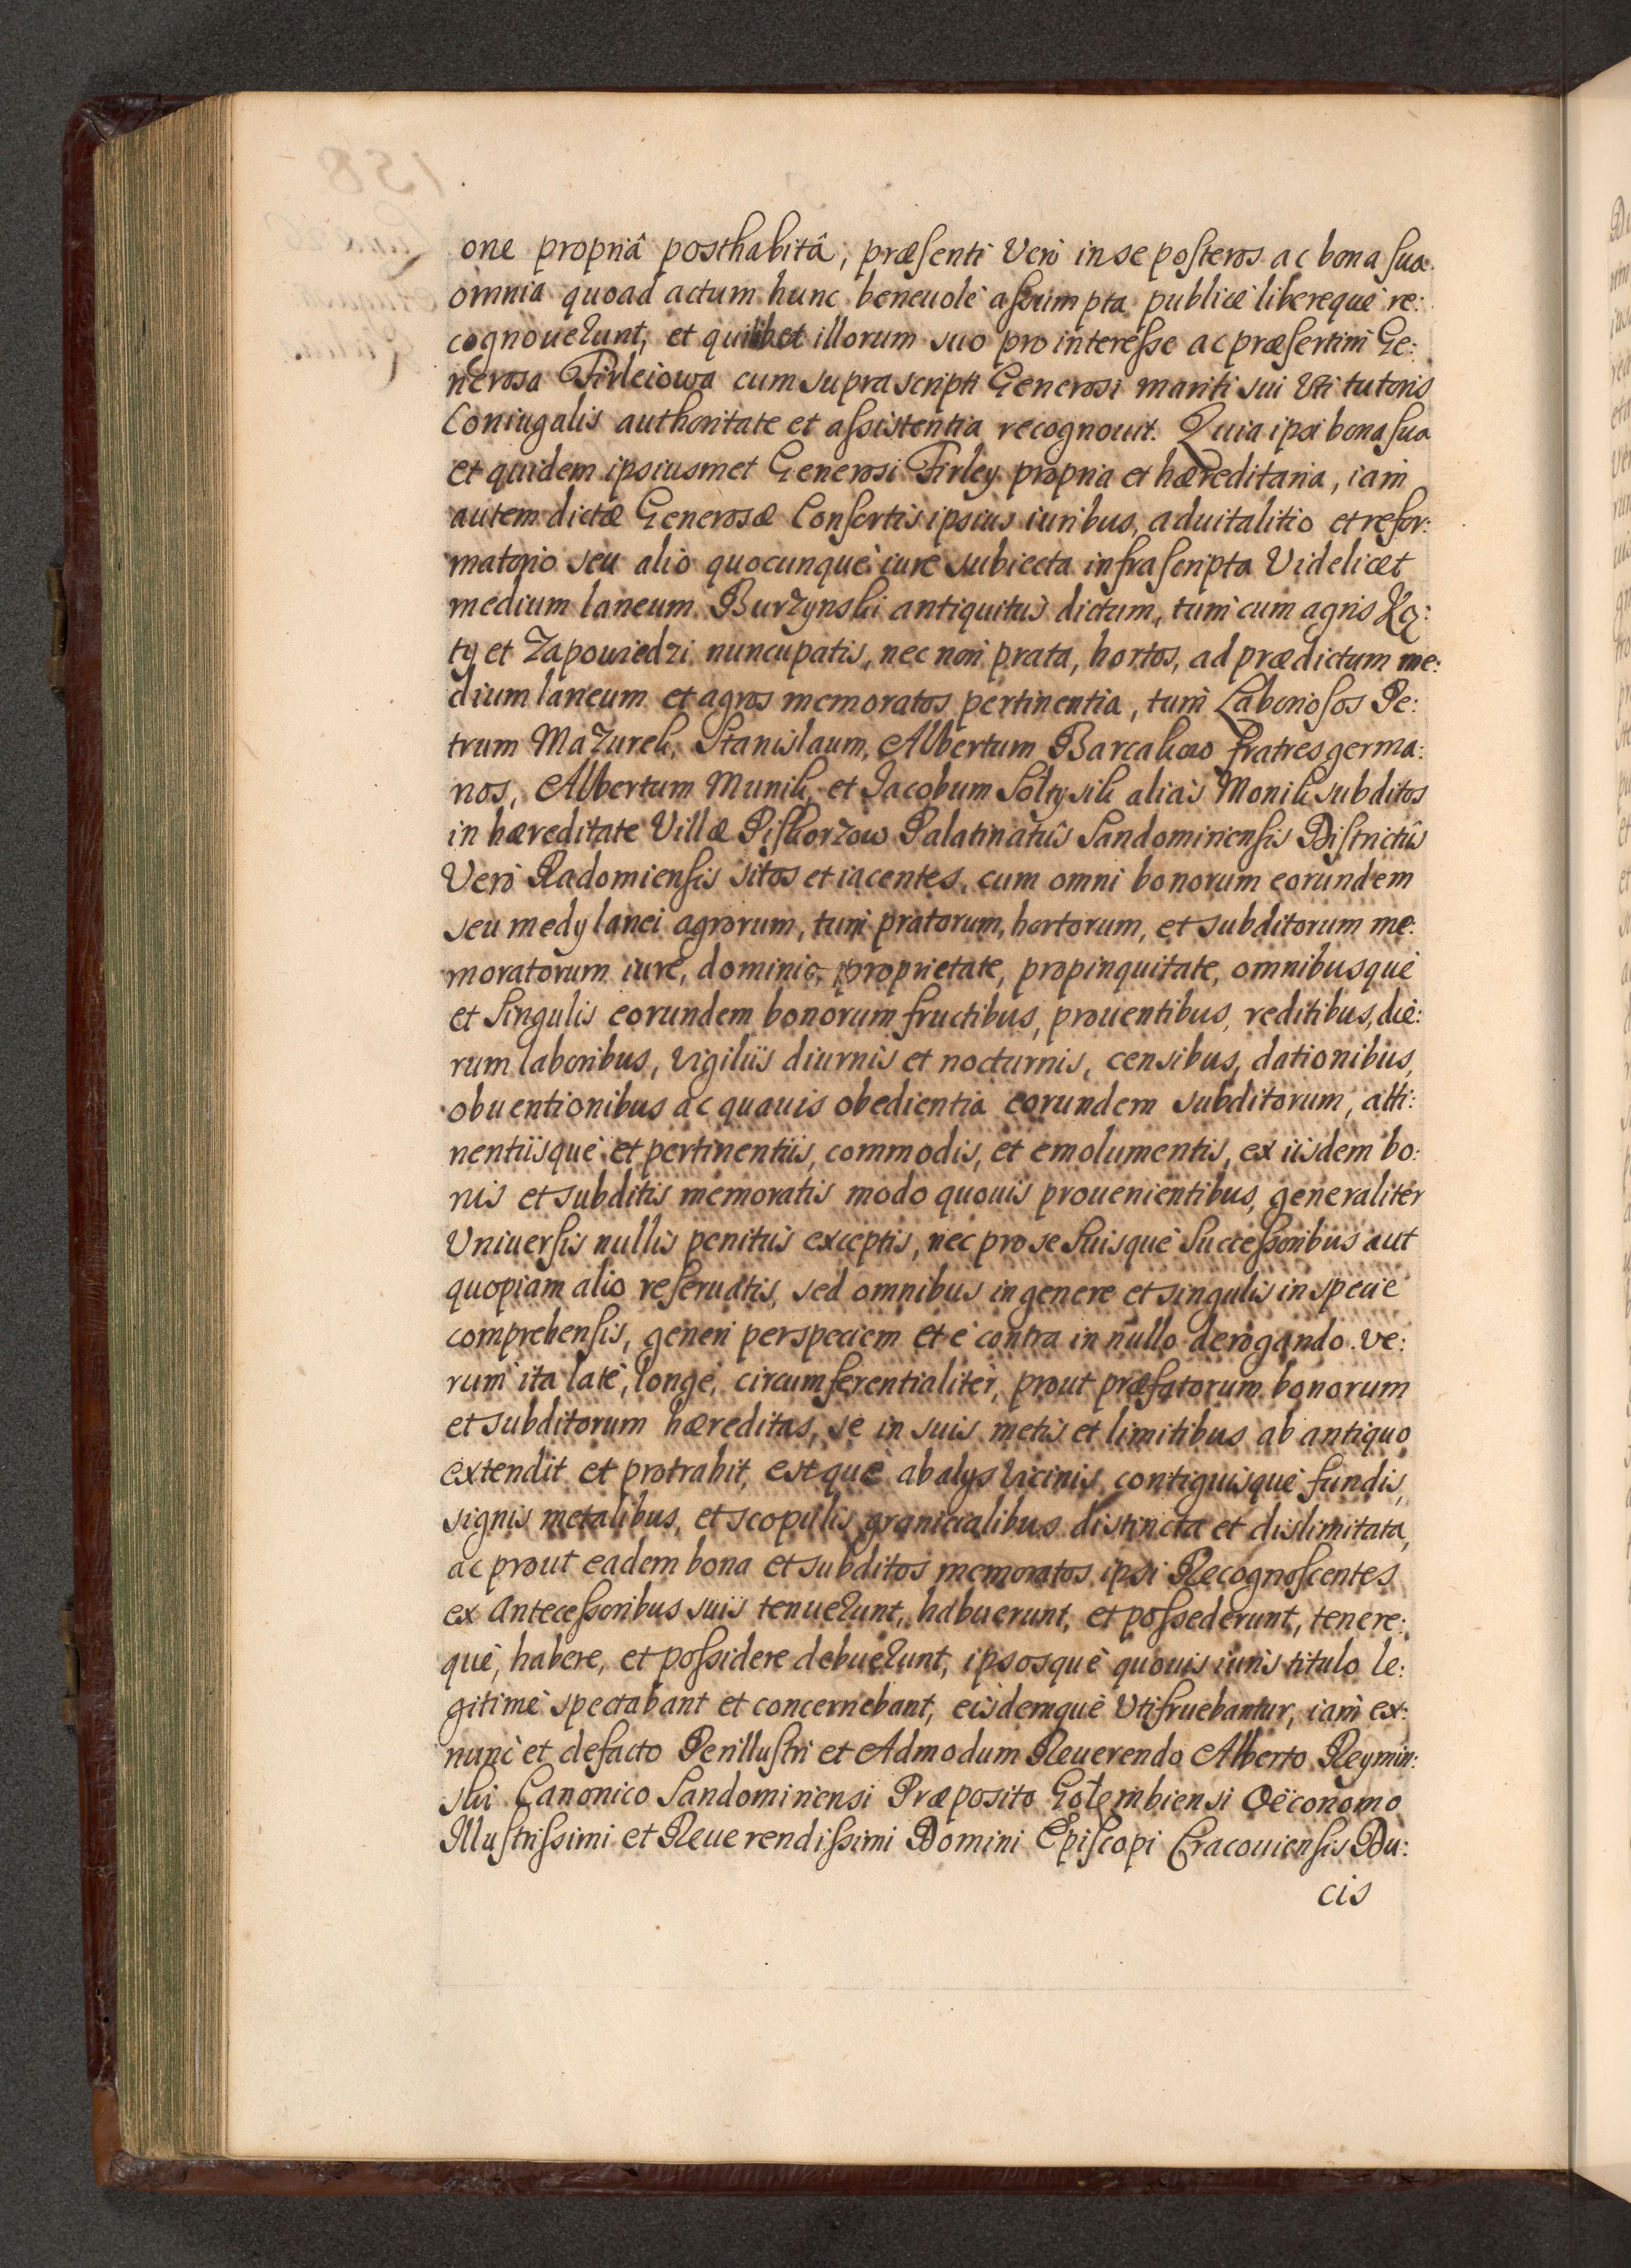 one propriâ posthabitâ, præsenti Verò in se posteros ac bona sua
omnia quoad actum hunc beneuolè assumpta publicè liberequè re:
cognouerunt, et quilibet illorum suo pro interesse ac præsertim Ge:
nerosa Firleiowa cum suprascripti Generosi mariti sui Uti tutoris
Coniugalis authoritate et assistentia recognouit. Quia ipsi bona sua
et quidem ipsiusmet Generosi Firley propria et hæreditaria, iam
autem dictæ Generosæ Consortis ipsius iuribus, aduitalitio et refor:
matorio seu alio quocunquè iure subiecta infrascripta Videlicet
medium laneum Burzynski antiquitùs dictum, tum cum agris Ką:
ty et Zapowiedzi nuncupatis, nec non prata, hortos, ad prædictum me:
dium laneum et agros memoratos pertinentia, tum Laboriosos Pe:
trum Mazurek, Stanislaum, Albertum Barcakowo fratres germa:
nos, Albertum Munik, et Jacobum Soltysik aliàs Monik subditos
in hæreditate Villæ Piskorzow Palatinatûs Sandomiriensis Districtûs
Verò Radomiensis sitos et iacentes, cum omni bonorum eorundem
seu medij lanei agrorum, tum pratorum, hortorum, et subditorum me:
moratorum iure, dominio, proprietate, propinquitate, omnibusquè
et Singulis eorundem bonorum fructibus, prouentibus, reditibus, die:
rum laboribus, Vigiliis diurnis et nocturnis, censibus, dationibus,
obuentionibus ac quauis obedientia eorundem subditorum, atti:
nentiisquè et pertinentiis, commodis, et emolumentis, ex iisdem bo:
nis et subditis memoratis modo quouis prouenientibus, generaliter
Uniuersis nullis penitùs exceptis, nec pro se Suisquè Successoribus aut
quopiam alio reseruatis, sed omnibus in genere et singulis in specie
comprehensis, generi per speciem et è contra in nullo derogando. Ve:
rum ita latè, longè, circumferentialiter, prout præfatorum bonorum
et subditorum hæreditas, se in suis metis et limitibus ab antiquo
extendit et protrahit, estquè ab alys Vicinis contiguisquè fundis,
signis metalibus, et scopulis granicialibus distincta et dislimitata,
ac prout eadem bona et subditos memoratos ipsi Recognoscentes
ex Antecessoribus suis tenuerunt, habuerunt, et possederunt, tenere:
què, habere, et possidere debuerunt, ipsosquè quouis iuris titulo le:
gitimè spectabant et concernebant, eisdemquè Utifruebantur, iam ex:
nunc et defacto Perillustri et Admodum Reuerendo Alberto Reymin:
ski Canonico Sandomiriensi Præposito Gołembiensi Oëconomo
Illustrissimi et Reuerendissimi Domini Episcopi Cracouiensis Du:
cis